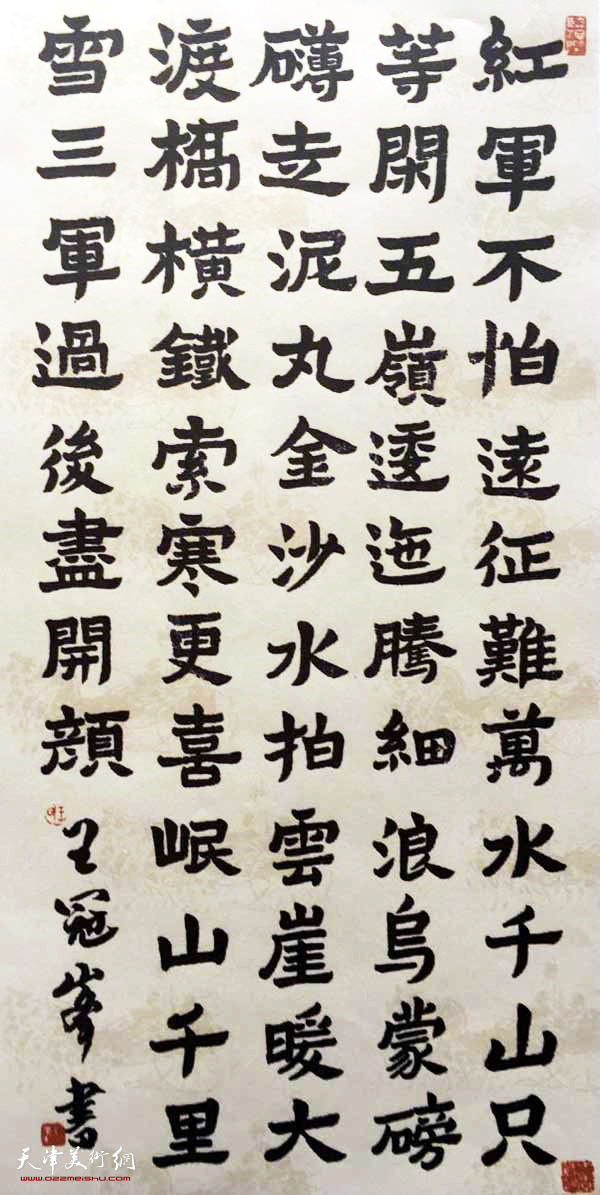 紅軍不怕遠征難萬水千山只
等閑五嶺逶迤騰細浪烏蒙磅
礴走泥丸金沙水拍雲崖暖大
渡橋橫鐵索寒更喜岷山千里
雪三軍過後盡開顏
王冠峰書
天津美術網
www.022meishu.com